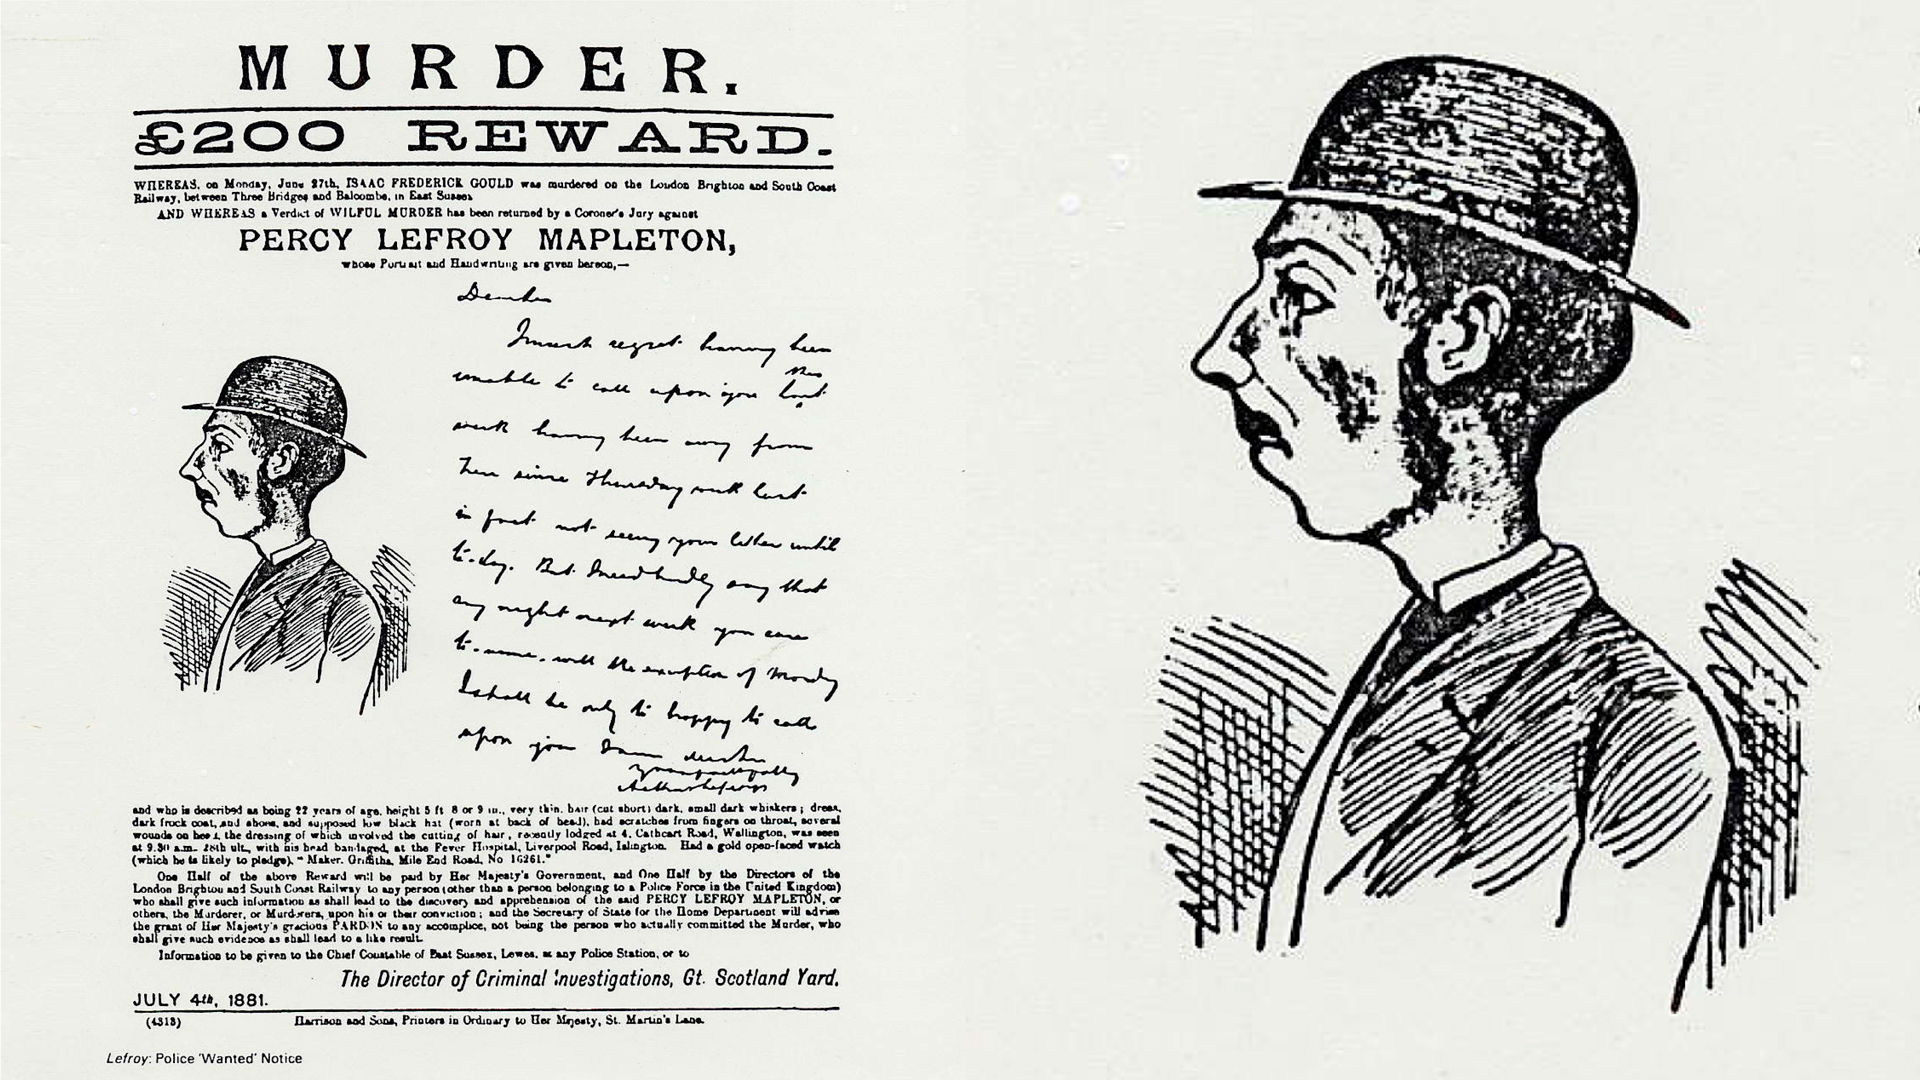 MURDER.
£200 REWARD.
WHEREAS, on Monday, June 27th, ISAAC FREDERICK GOULD was murdered on the London Brighton and South Coast
Railway, between Three Bridges and Balcombe, in East Sussex
AND WHEREAS a Verdict of WILFUL MURDER has been returned by a Coroner's Jury against
PERCY LEFROY MAPLETON,
whose Portrait and Handwriting are given hereon,—
Dear Sir
I much regret having been
unable to call upon you last this
week having been away from
here since Thursday week last
in fact not seeing your letter until
to-day. But I need hardly say that
any night next week you care
to name, with the exception of Monday
I shall be only too happy to call
upon you I am dear Sir
yours faithfully
Arthur Lefroy
and who is described as being 22 years of age, height 5 ft 8 or 9 in., very thin, hair (cut short) dark, small dark whiskers; dress,
dark frock coat, and shoes, and supposed low black hat (worn at back of head), had scratches from fingers on throat, several
wounds on head, the dressing of which involved the cutting of hair, recently lodged at 4, Cathcart Road, Wallington, was seen
at 9.30 a.m. 28th ult., with his head bandaged, at the Fever Hospital, Liverpool Road, Islington. Had a gold open-faced watch
(which he is likely to pledge), "Maker, Griffiths, Mile End Road, No 16261."
One Half of the above Reward will be paid by Her Majesty's Government, and One Half by the Directors of the
London Brighton and South Coast Railway to any person (other than a person belonging to a Police Force in the United Kingdom)
who shall give such information as shall lead to the discovery and apprehension of the said PERCY LEFROY MAPLETON, or
others, the Murderer, or Murderers, upon his or their conviction; and the Secretary of State for the Home Department will advise
the grant of Her Majesty's gracious PARDON to any accomplice, not being the person who actually committed the Murder, who
shall give such evidence as shall lead to a like result.
Information to be given to the Chief Constable of East Sussex, Lewes, at any Police Station, or to
The Director of Criminal Investigations, Gt. Scotland Yard.
JULY 4th, 1881.
(4313) Harrison and Sons, Printers in Ordinary to Her Majesty, St. Martin's Lane.
Lefroy: Police 'Wanted' Notice